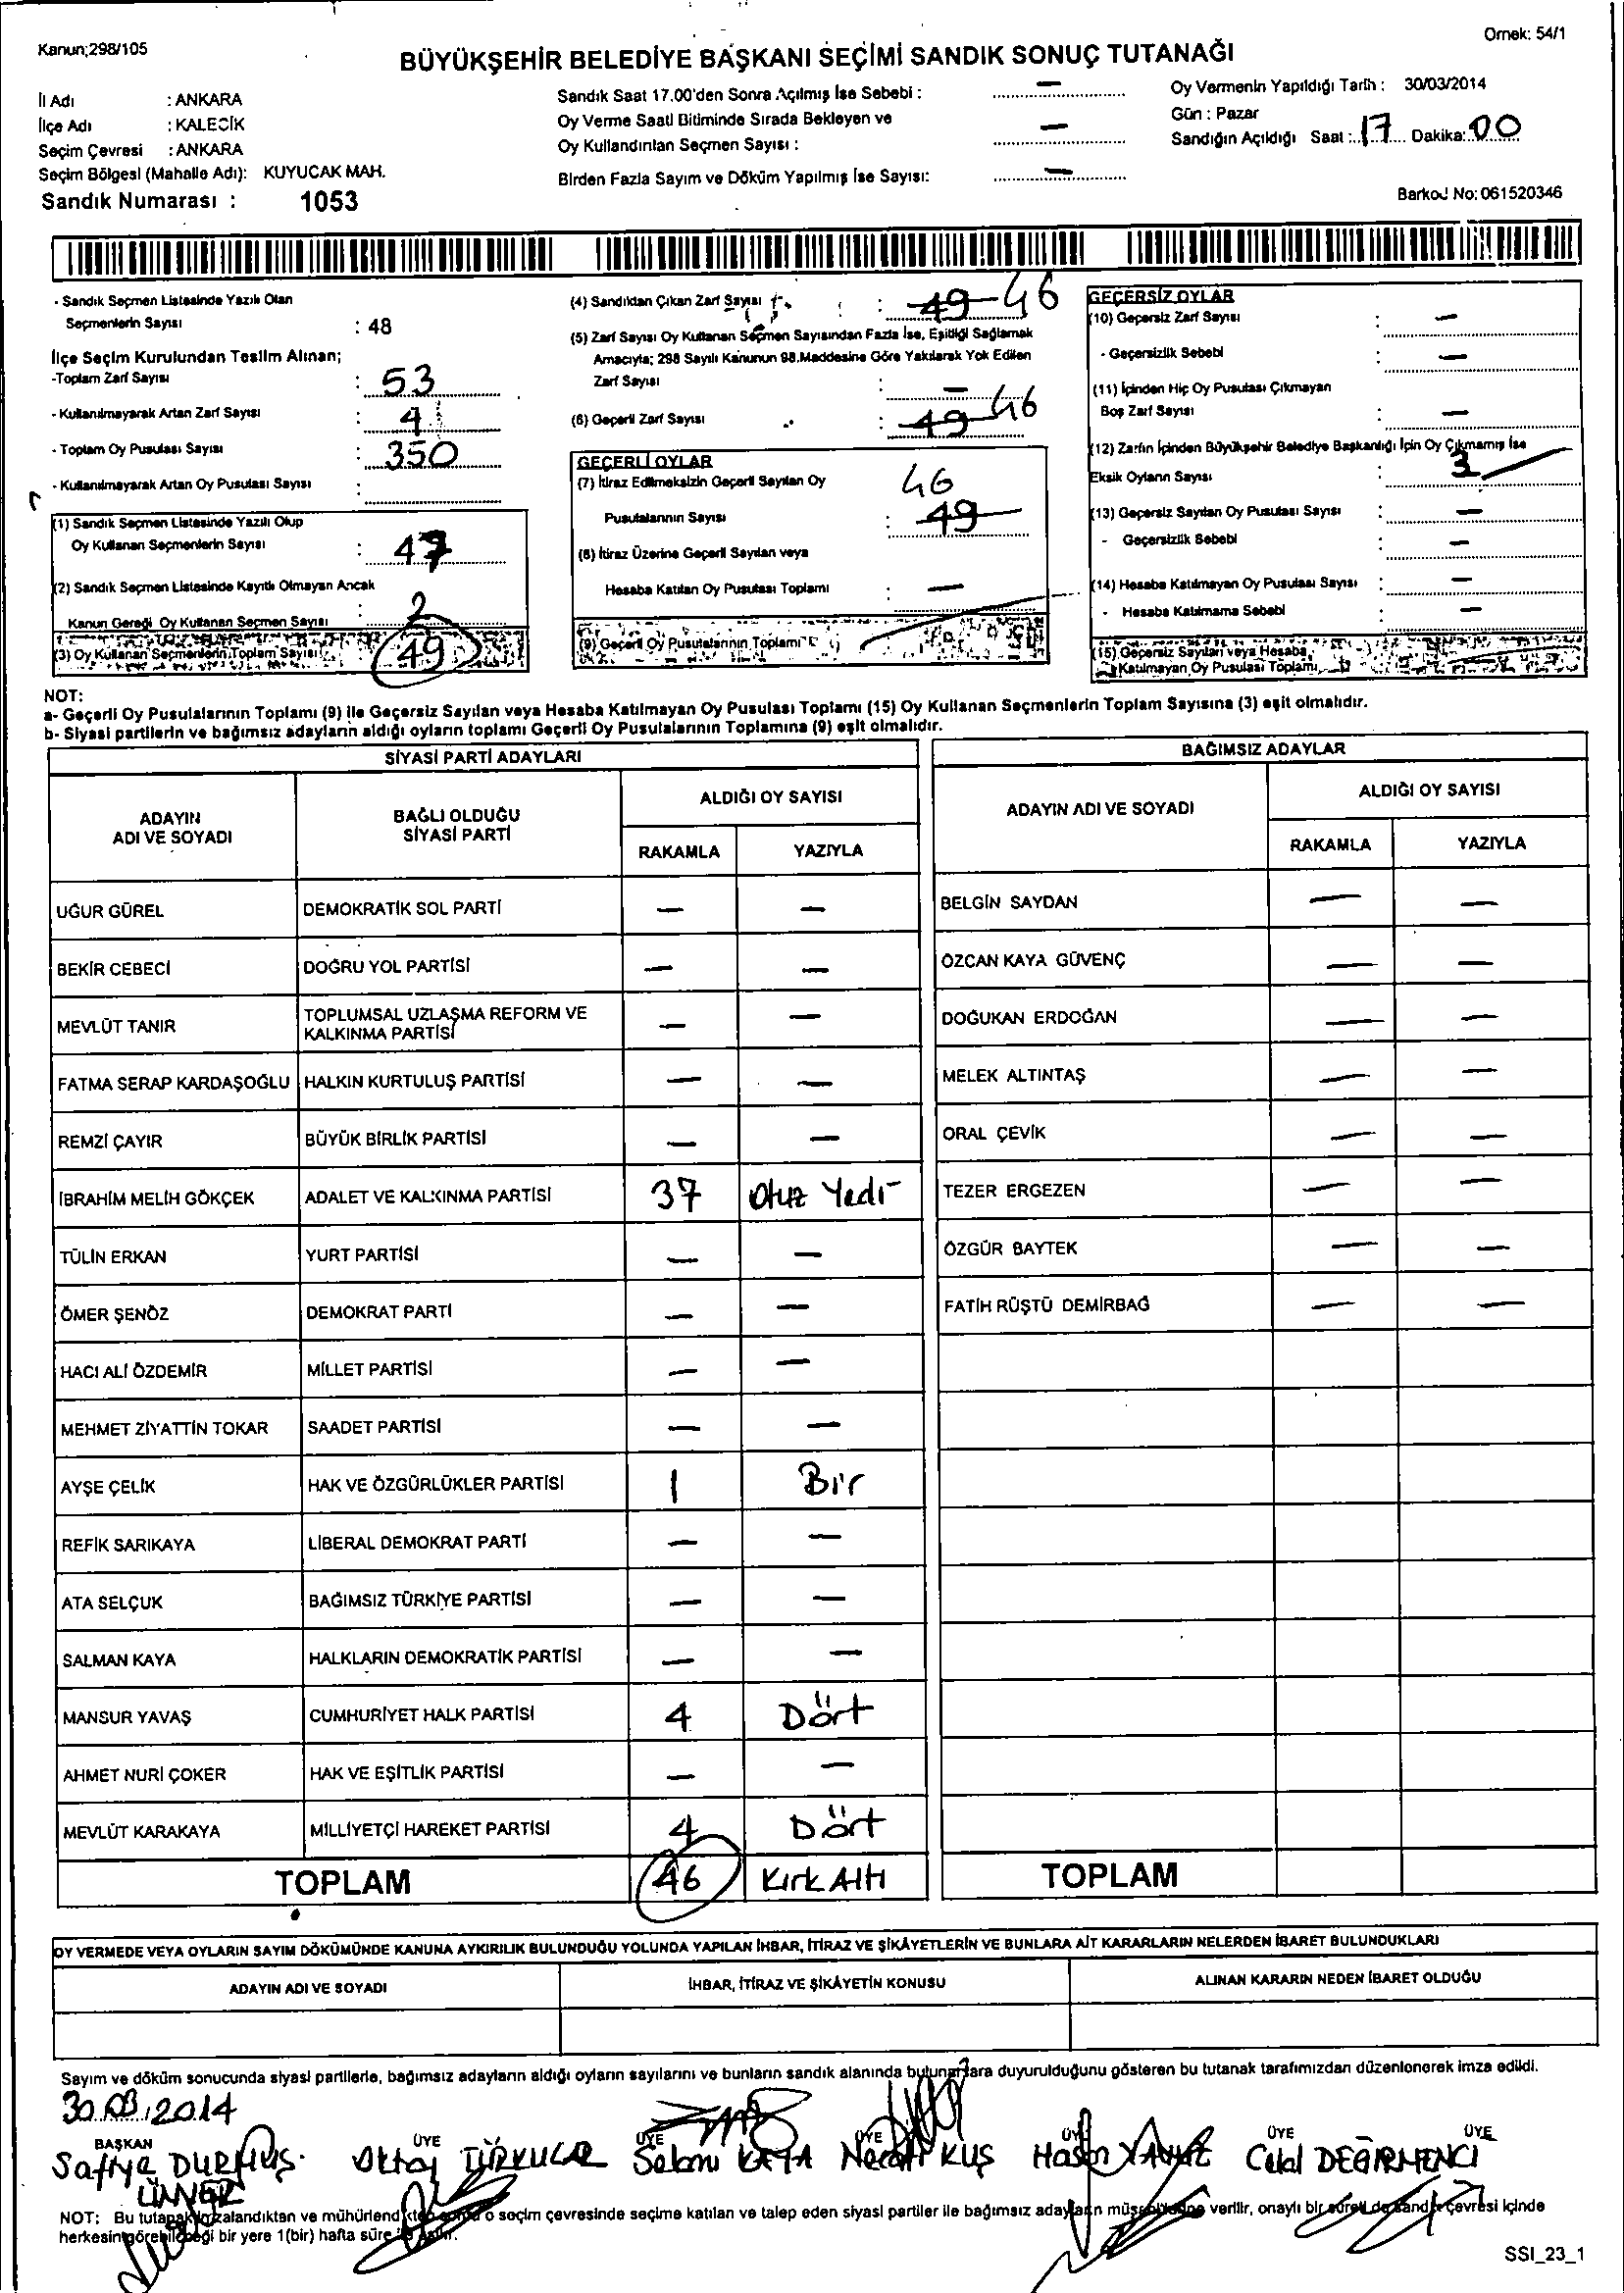 Kanun;298/105
Örnek: 54/1
BÜYÜKŞEHİR BELEDİYE BAŞKANI SEÇİMİ SANDIK SONUÇ TUTANAĞI
İl Adı : ANKARA
İlçe Adı : KALECİK
Seçim Çevresi : ANKARA
Seçim Bölgesi (Mahalle Adı): KUYUCAK MAH.
Sandık Numarası : 1053
Sandık Saat 17.00'den Sonra Açılmış İse Sebebi : —
Oy Verme Saati Bitiminde Sırada Bekleyen ve
Oy Kullandırılan Seçmen Sayısı : —
Birden Fazla Sayım ve Döküm Yapılmış İse Sayısı: —
Oy Vermenin Yapıldığı Tarih : 30/03/2014
Gün : Pazar
Sandığın Açıldığı Saat : 17 Dakika: 00
Barkod No: 061520346
- Sandık Seçmen Listesinde Yazılı Olan
Seçmenlerin Sayısı : 48
İlçe Seçim Kurulundan Teslim Alınan;
-Toplam Zarf Sayısı : 53
- Kullanılmayarak Artan Zarf Sayısı : 4
- Toplam Oy Pusulası Sayısı : 350
- Kullanılmayarak Artan Oy Pusulası Sayısı :
(1) Sandık Seçmen Listesinde Yazılı Olup
Oy Kullanan Seçmenlerin Sayısı : 47
(2) Sandık Seçmen Listesinde Kayıtlı Olmayan Ancak
Kanun Gereği Oy Kullanan Seçmen Sayısı : 2
(3) Oy Kullanan Seçmenlerin Toplam Sayısı : 49
(4) Sandıktan Çıkan Zarf Sayısı : 49 46
(5) Zarf Sayısı Oy Kullanan Seçmen Sayısından Fazla İse, Eşitliği Sağlamak
Amacıyla; 298 Sayılı Kanunun 98.Maddesine Göre Yakılarak Yok Edilen
Zarf Sayısı : —
(6) Geçerli Zarf Sayısı : 49 46
GEÇERLİ OYLAR
(7) İtiraz Edilmeksizin Geçerli Sayılan Oy 46
Pusulalarının Sayısı : 49
(8) İtiraz Üzerine Geçerli Sayılan veya
Hesaba Katılan Oy Pusulası Toplamı : —
(9) Geçerli Oy Pusulalarının Toplamı
GEÇERSİZ OYLAR
(10) Geçersiz Zarf Sayısı : —
- Geçersizlik Sebebi : —
(11) İçinden Hiç Oy Pusulası Çıkmayan
Boş Zarf Sayısı : —
(12) Zarfın İçinden Büyükşehir Belediye Başkanlığı İçin Oy Çıkmamış İse
Eksik Oyların Sayısı : 3
(13) Geçersiz Sayılan Oy Pusulası Sayısı : —
- Geçersizlik Sebebi : —
(14) Hesaba Katılmayan Oy Pusulası Sayısı : —
- Hesaba Katılmama Sebebi : —
(15) Geçersiz Sayılan veya Hesaba
Katılmayan Oy Pusulası Toplamı
NOT:
a- Geçerli Oy Pusulalarının Toplamı (9) ile Geçersiz Sayılan veya Hesaba Katılmayan Oy Pusulası Toplamı (15) Oy Kullanan Seçmenlerin Toplam Sayısına (3) eşit olmalıdır.
b- Siyasi partilerin ve bağımsız adayların aldığı oyların toplamı Geçerli Oy Pusulalarının Toplamına (9) eşit olmalıdır.
SİYASİ PARTİ ADAYLARI
ADAYIN ADI VE SOYADI
BAĞLI OLDUĞU SİYASİ PARTİ
ALDIĞI OY SAYISI
RAKAMLA YAZIYLA
UĞUR GÜREL DEMOKRATİK SOL PARTİ — —
BEKİR CEBECİ DOĞRU YOL PARTİSİ — —
MEVLÜT TANIR TOPLUMSAL UZLAŞMA REFORM VE KALKINMA PARTİSİ — —
FATMA SERAP KARDAŞOĞLU HALKIN KURTULUŞ PARTİSİ — —
REMZİ ÇAYIR BÜYÜK BİRLİK PARTİSİ — —
İBRAHİM MELİH GÖKÇEK ADALET VE KALKINMA PARTİSİ 37 Otuz Yedi
TÜLİN ERKAN YURT PARTİSİ — —
ÖMER ŞENÖZ DEMOKRAT PARTİ — —
HACI ALİ ÖZDEMİR MİLLET PARTİSİ — —
MEHMET ZİYATTİN TOKAR SAADET PARTİSİ — —
AYŞE ÇELİK HAK VE ÖZGÜRLÜKLER PARTİSİ 1 Bir
REFİK SARIKAYA LİBERAL DEMOKRAT PARTİ — —
ATA SELÇUK BAĞIMSIZ TÜRKİYE PARTİSİ — —
SALMAN KAYA HALKLARIN DEMOKRATİK PARTİSİ — —
MANSUR YAVAŞ CUMHURİYET HALK PARTİSİ 4 Dört
AHMET NURİ ÇOKER HAK VE EŞİTLİK PARTİSİ — —
MEVLÜT KARAKAYA MİLLİYETÇİ HAREKET PARTİSİ 4 Dört
TOPLAM 46 Kırk Altı
BAĞIMSIZ ADAYLAR
ADAYIN ADI VE SOYADI
ALDIĞI OY SAYISI
RAKAMLA YAZIYLA
BELGİN SAYDAN — —
ÖZCAN KAYA GÜVENÇ — —
DOĞUKAN ERDOĞAN — —
MELEK ALTINTAŞ — —
ORAL ÇEVİK — —
TEZER ERGEZEN — —
ÖZGÜR BAYTEK — —
FATİH RÜŞTÜ DEMİRBAĞ — —
TOPLAM
OY VERMEDE VEYA OYLARIN SAYIM DÖKÜMÜNDE KANUNA AYKIRILIK BULUNDUĞU YOLUNDA YAPILAN İHBAR, İTİRAZ VE ŞİKÂYETLERİN VE BUNLARA AİT KARARLARIN NELERDEN İBARET BULUNDUKLARI
ADAYIN ADI VE SOYADI İHBAR, İTİRAZ VE ŞİKÂYETİN KONUSU ALINAN KARARIN NEDEN İBARET OLDUĞU
Sayım ve döküm sonucunda siyasi partilerle, bağımsız adayların aldığı oyların sayılarını ve bunların sandık alanında bulunanlara duyurulduğunu gösteren bu tutanak tarafımızdan düzenlenerek imza edildi.
30.03.2014
BAŞKAN ÜYE ÜYE ÜYE ÜYE ÜYE ÜYE
Safiye DURMUŞ Oktay TÜRKUCAR Selami KAYA Necati KUŞ Hasan YAVUZ Celal DEĞİRMENCİ
ÜNVER
NOT: Bu tutanak imzalandıktan ve mühürlendikten sonra o seçim çevresinde seçime katılan ve talep eden siyasi partiler ile bağımsız adayların müşahitlerine verilir, onaylı bir sureti de sandık çevresi içinde
herkesin görebileceği bir yere 1(bir) hafta süre ile asılır.
SSI_23_1